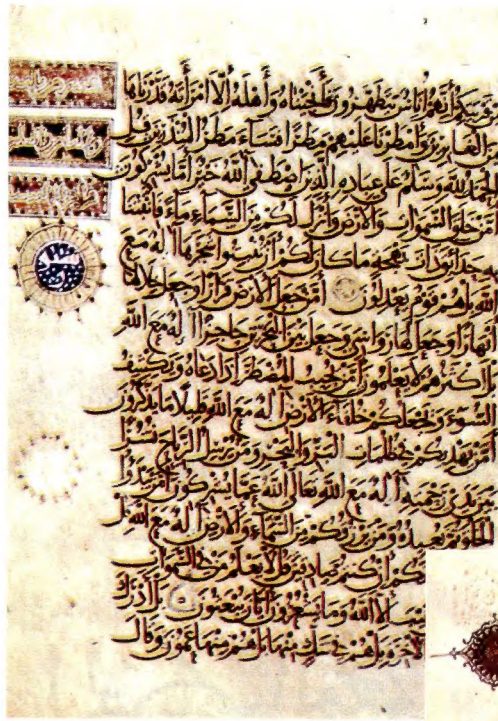 قريتكم إنهم أناس يتطهرون فأنجيناه وأهله إلا امرأته قدرناها
من الغابرين وأمطرنا عليهم مطرا فساء مطر المنذرين قل
الحمد لله وسلام على عباده الذين اصطفى آلله خير أما يشركون
أمن خلق السموات والأرض وأنزل لكم من السماء ماء فأنبتنا
به حدائق ذات بهجة ما كان لكم أن تنبتوا شجرها أإله مع
الله بل هم قوم يعدلون أمن جعل الأرض قرارا وجعل خلالها
أنهارا وجعل لها رواسي وجعل بين البحرين حاجزا أإله مع الله
بل أكثرهم لا يعلمون أمن يجيب المضطر إذا دعاه ويكشف
السوء ويجعلكم خلفاء الأرض أإله مع الله قليلا ما يذكرون
أمن يهديكم في ظلمات البر والبحر ومن يرسل الرياح نشرا
بين يدي رحمته أإله مع الله تعالى الله عما يشركون أمن يبدؤا
الخلق ثم يعيده ومن يرزقكم من السماء والأرض أإله مع الله قل
كم إن كنتم صادقين قل لا يعلم من في السموات
إلا الله وما يشعرون أيان يبعثون بل ادرك
الآخرة بل هم في شك منها بل هم منها عمون وقال